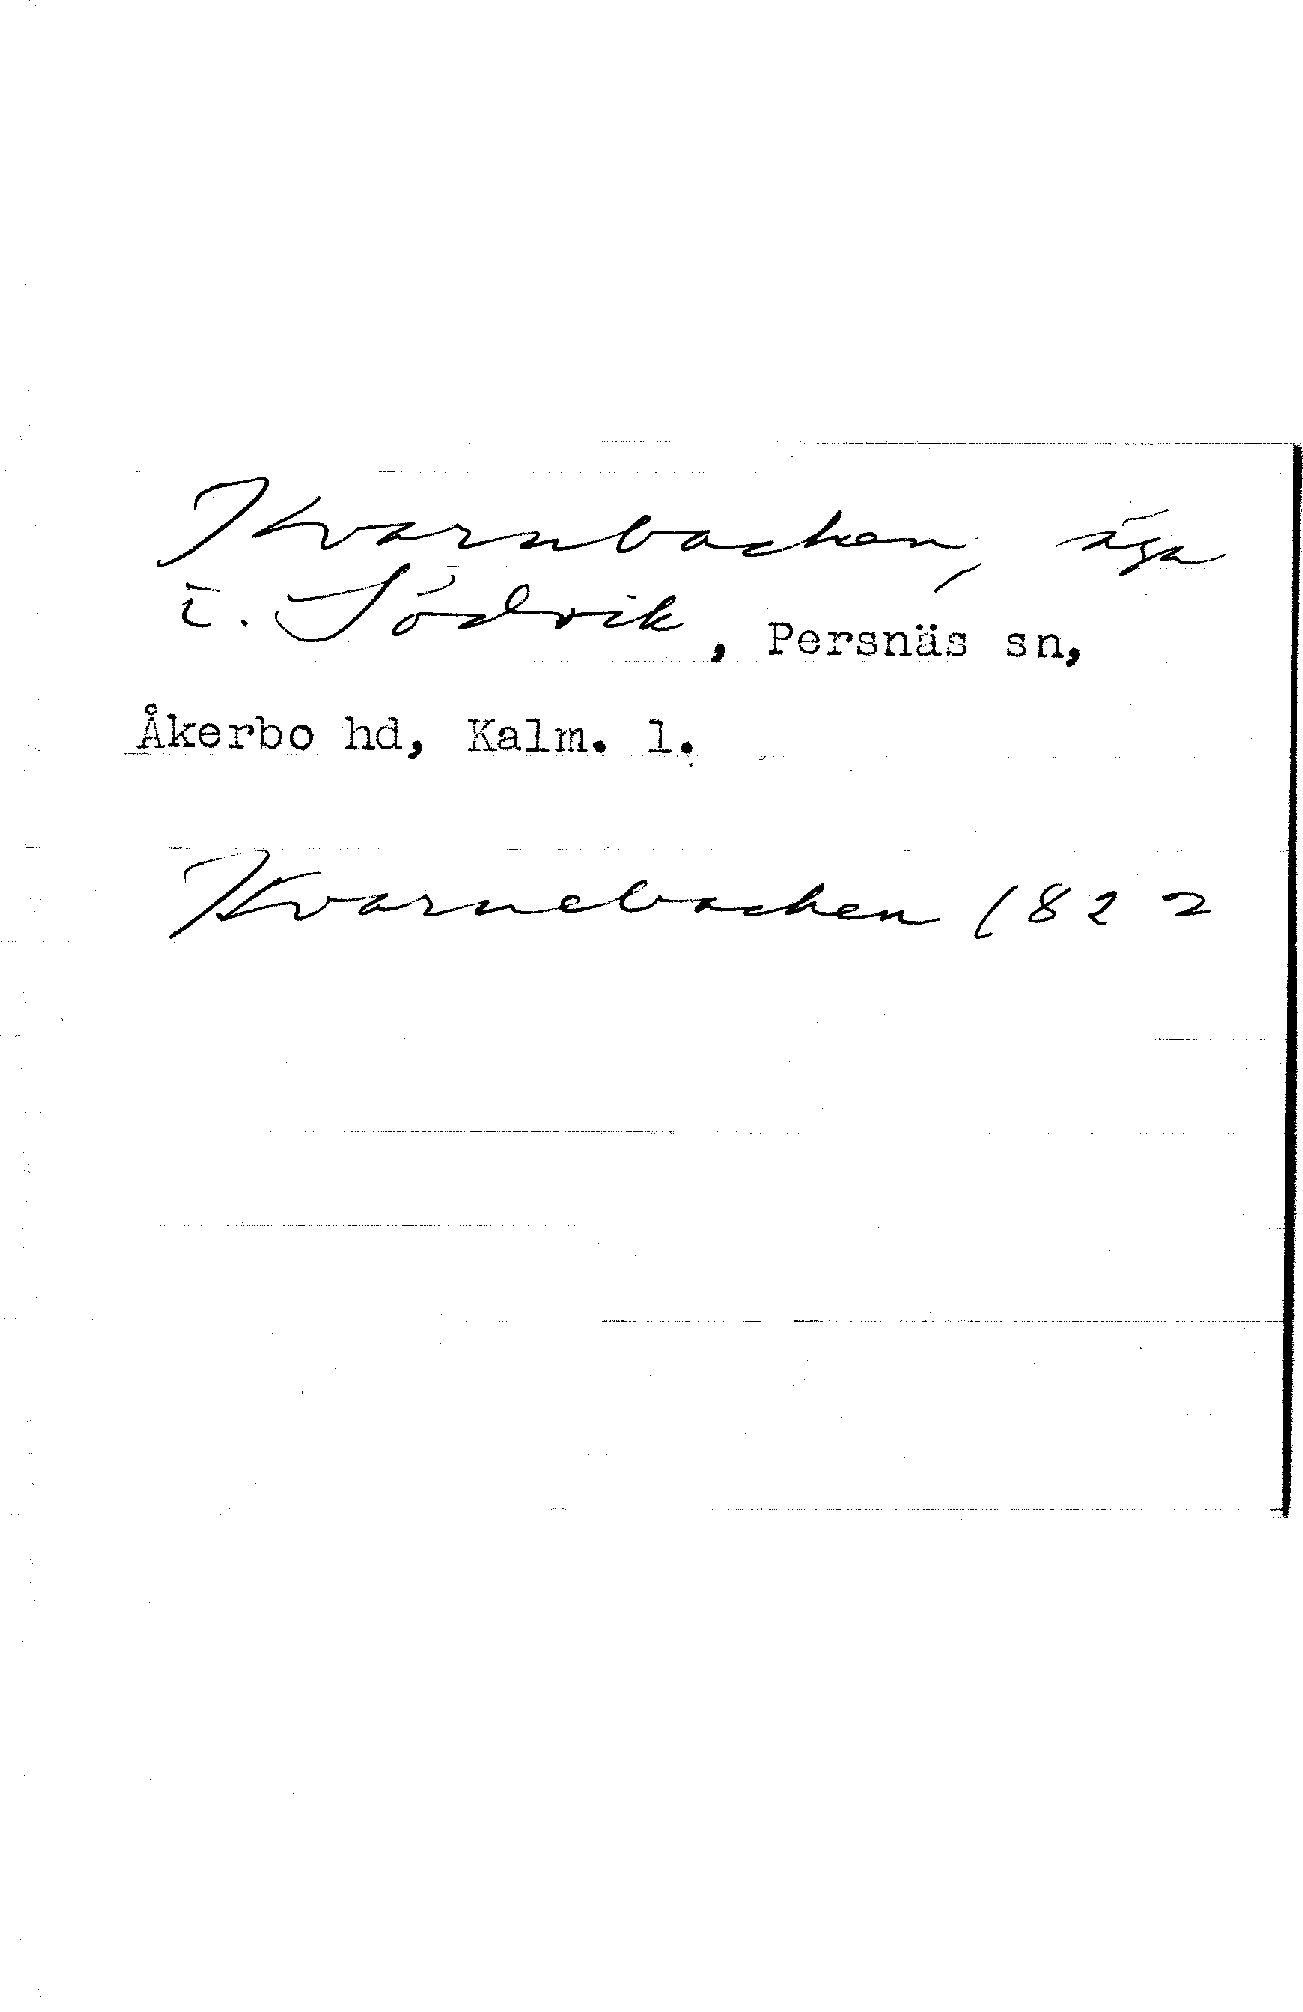 Kvarnbacken, äga
i. Södvik, Persnäs sn,
Åkerbo hd, Kalm. l.
Kvarnebacken 1822